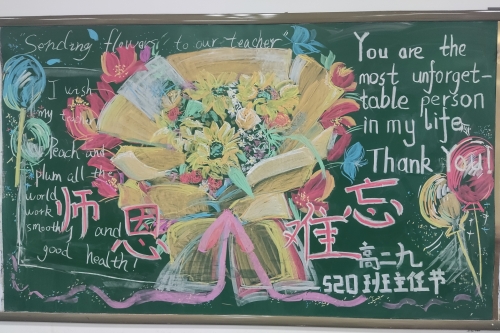 "Sending flowers to our teacher"
I wish
my
Peach and
plum all the
world
work
smoothly and
good health!
You are the
most unforget-
table person
in my life.
Thank You!
师恩难忘
高二九
520 班主任节